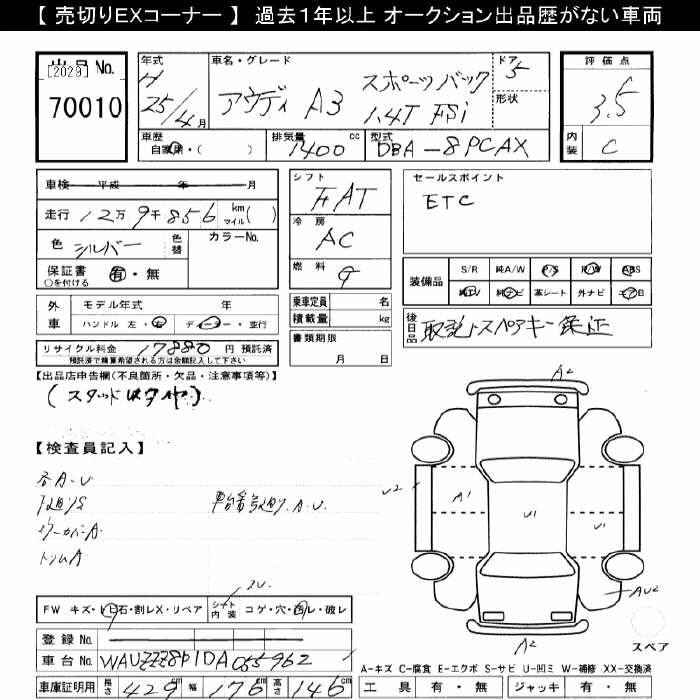 【 売切りEXコーナー 】 過去1年以上 オークション出品歴がない車両
出品No.
[2029]
70010
年式
H
25/4月
車名・グレード
アウディ A3 スポーツバック
1.4T FSi
ドア
5
形状
評価点
3.5
内装
C
車歴
自家用・( )
排気量
1400 cc
型式
DBA-8PCAX
車検 平成 年 月
走行 12万9千856 km マイル( )
色 シルバー 色替
カラーNo.
保証書 有・無
○を付ける
シフト
FAT
冷房
AC
燃料
G
セールスポイント
ETC
装備品
S/R 純A/W P/S R/W ABS
純TV 純ナビ 革シート 外ナビ エアB
外車
モデル年式 年
ハンドル 左・右 ディーラー・並行
乗車定員 名
積載量 kg
書類期限
月 日
後日品
取説 スペアキー 保証
リサイクル料金 17880 円 預託済
預託済で精算希望される方は金額記入して下さい
【出品店申告欄(不良箇所・欠品・注意事項等)】
【検査員記入】
各A・U
下廻りS
トリムA
A2
U2
A1
U1
U1
AU2
A2
スペア
FW キズ・トビ石・割レX・リペア
シート内装
コゲ・穴・切レ・破レ
登録No.
車台No. WAUZZZ8P1DA055962
車庫証明用 長さ 429cm 幅 176cm 高さ 146cm
A-キズ C-腐食 E-エクボ S-サビ U-凹ミ W-補修 XX-交換済
工具 有・無 ジャッキ 有・無